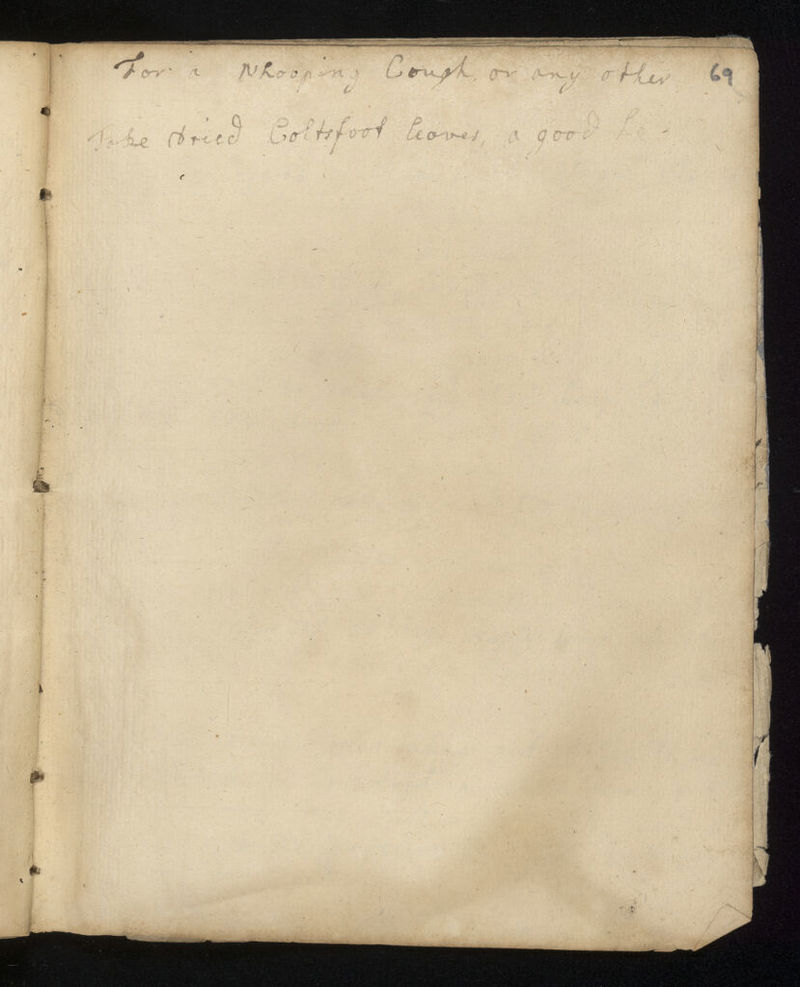 For a Whooping Cough or any other 69
Take dried Coltsfoot leaves, a good